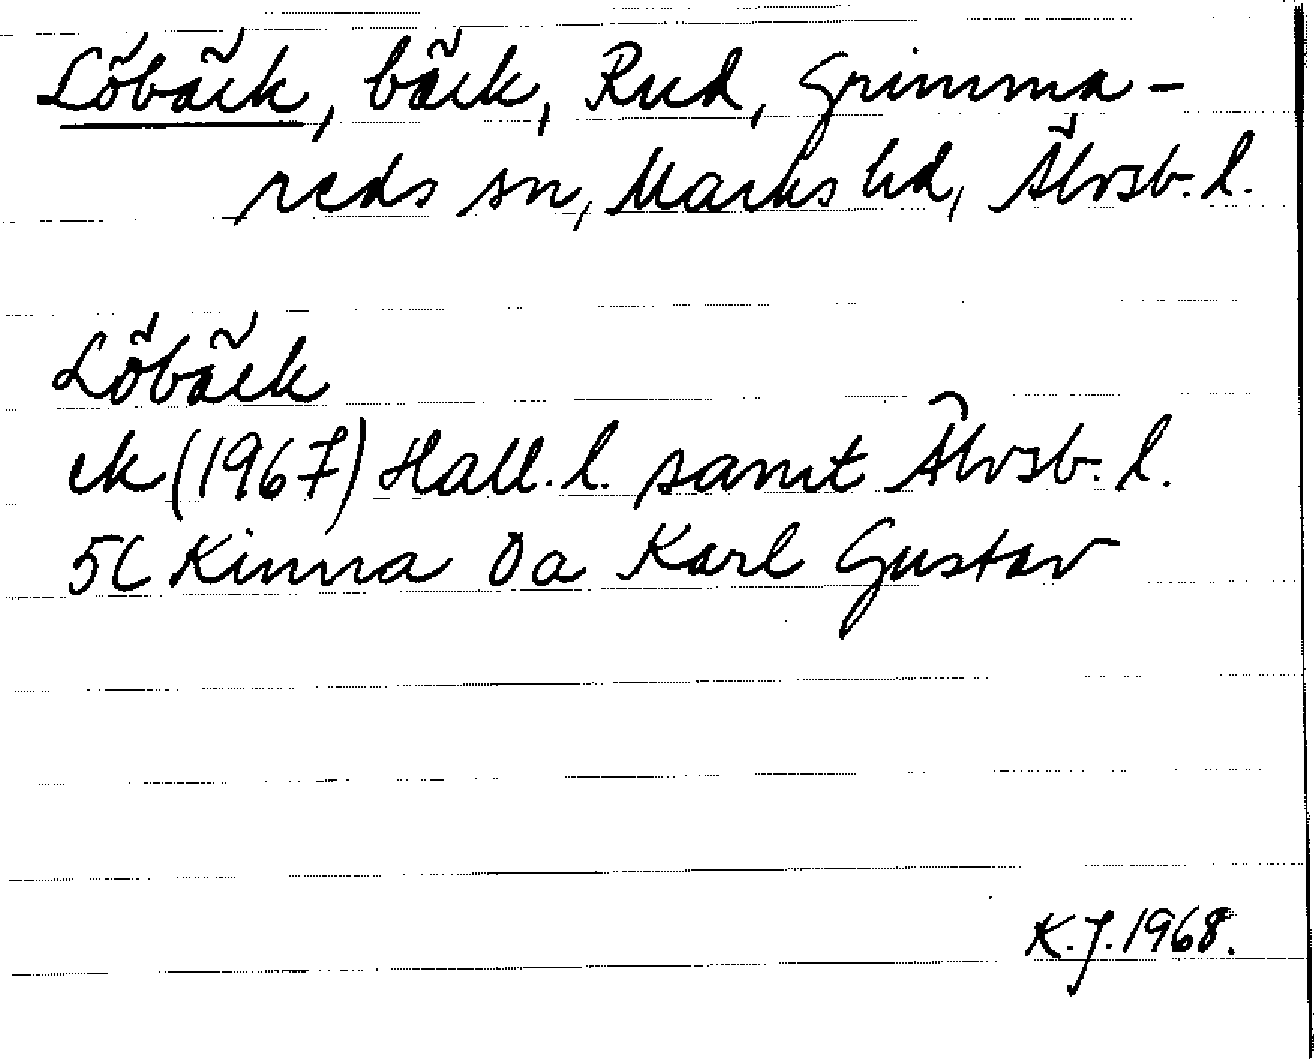 Löbäck, bäck, Rud, Grimma-
reds sn, Marks hd, Älvsb. l.
Löbäck
ek (1967) Hall. l. samt Älvsb. l.
5C Kinna 0a Karl Gustav
K.J. 1968.